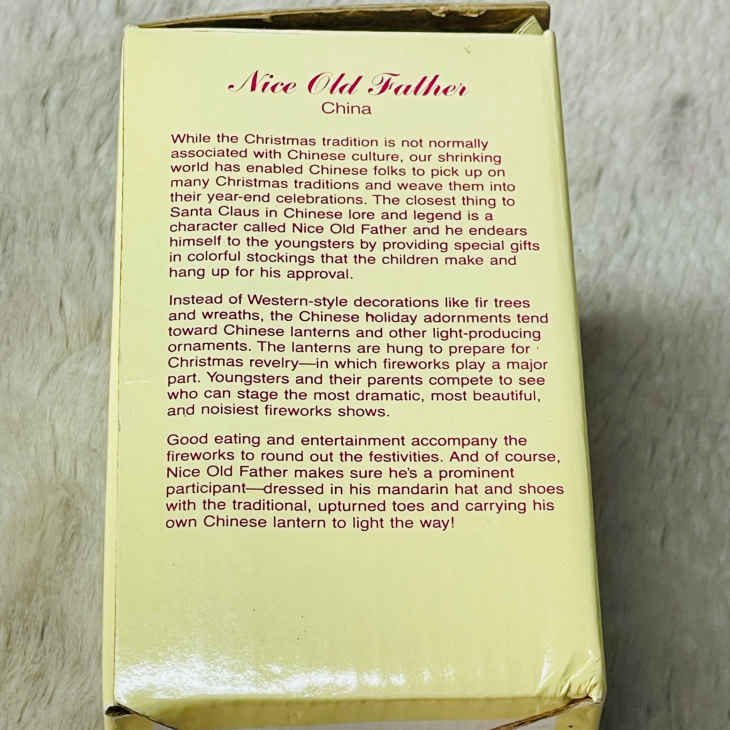 Nice Old Father
China
While the Christmas tradition is not normally
associated with Chinese culture, our shrinking
world has enabled Chinese folks to pick up on
many Christmas traditions and weave them into
their year-end celebrations. The closest thing to
Santa Claus in Chinese lore and legend is a
character called Nice Old Father and he endears
himself to the youngsters by providing special gifts
in colorful stockings that the children make and
hang up for his approval.
Instead of Western-style decorations like fir trees
and wreaths, the Chinese holiday adornments tend
toward Chinese lanterns and other light-producing
ornaments. The lanterns are hung to prepare for
Christmas revelry—in which fireworks play a major
part. Youngsters and their parents compete to see
who can stage the most dramatic, most beautiful,
and noisiest fireworks shows.
Good eating and entertainment accompany the
fireworks to round out the festivities. And of course,
Nice Old Father makes sure he's a prominent
participant—dressed in his mandarin hat and shoes
with the traditional, upturned toes and carrying his
own Chinese lantern to light the way!